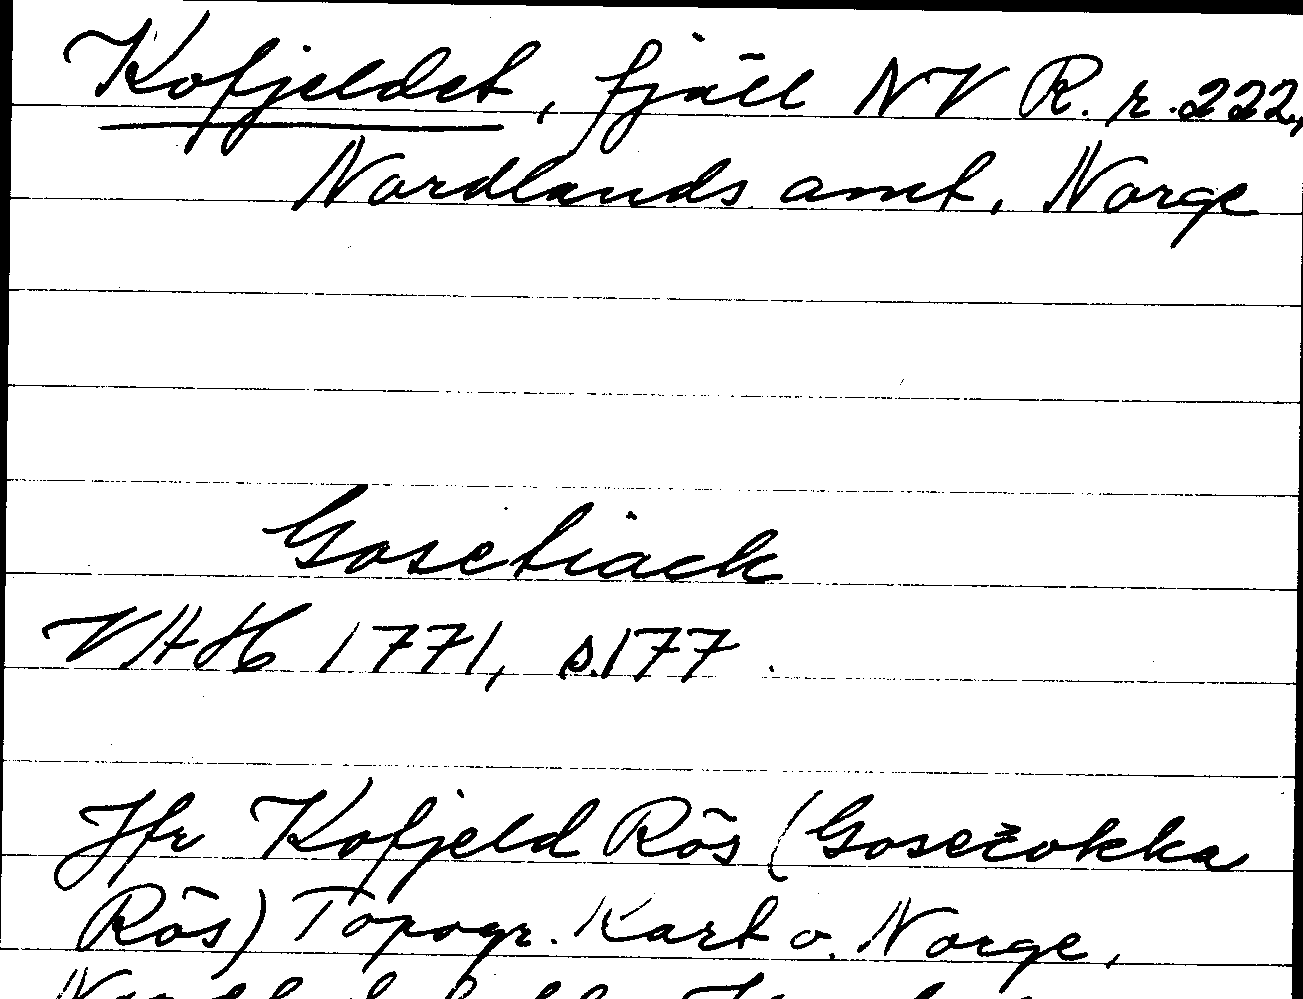 Kofjeldet, fjäll NV R. r. 222,
Nordlands amt, Norge
Gosetiack
VHH 1771, s. 177.
Jfr Kofjeld Rös (Gosečokka
Rös) Topogr. Kart o. Norge,